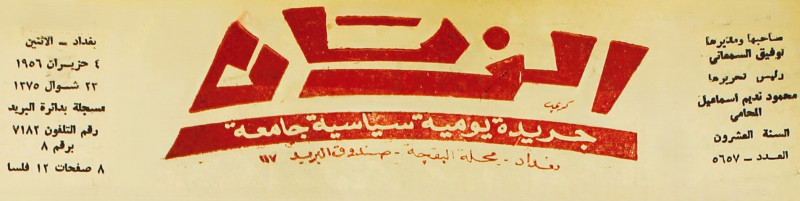 صاحبها ومديرها
توفيق السمعاني
رئيس تحريرها
محمود نديم اسماعيل
المحامي
السنة العشرون
العدد – ٥٦٥٧
الزمان
جريدة يومية سياسية جامعة
بغداد - محلة البقچة - صندوق البريد ١١٧
بغداد – الاثنين
٤ حزيران ١٩٥٦
٢٣ شوال ١٣٧٥
مسجلة بدائرة البريد
رقم التلفون ٧١٨٢
برقم ٨
٨ صفحات ١٢ فلسا